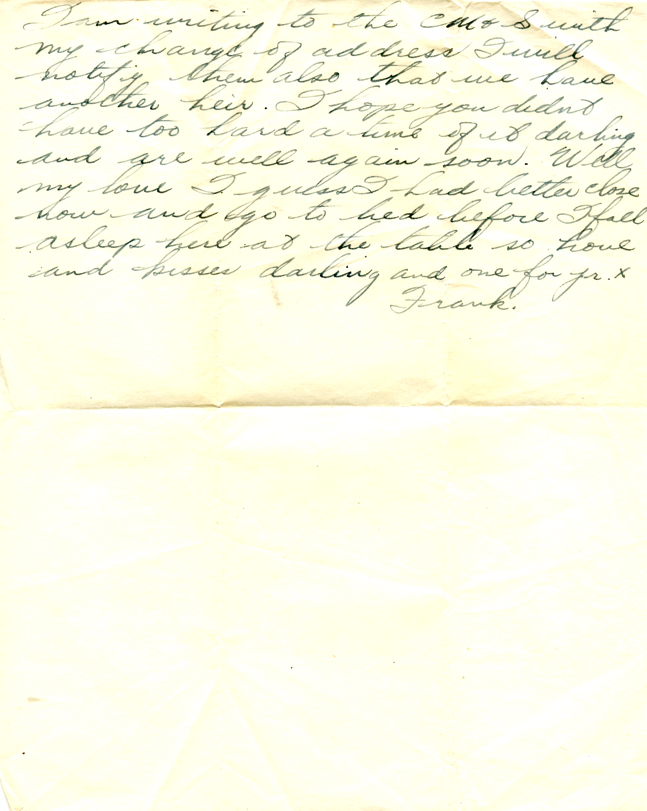 I am writing to the CM & S with
my change of address I will
notify them also that we have
another heir. I hope you didnt
have too hard a time of it darling
and are well again soon. Well
my love I guess I had better close
now and go to bed before I fall
asleep here at the table so love
and kisses darling and one for jr. x
Frank.